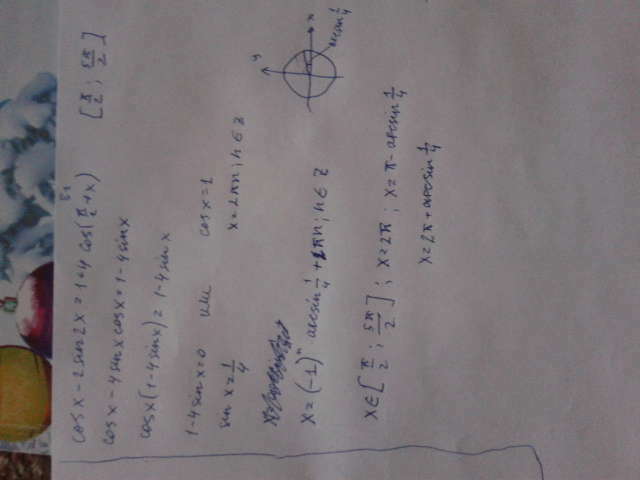 cos x - 2 sin 2x = 1 + 4 cos(π/2 + x) [π/2 ; 5π/2]
cos x - 4 sin x cos x = 1 - 4 sin x
cos x (1 - 4 sin x) = 1 - 4 sin x
1 - 4 sin x = 0 или cos x = 1
sin x = 1/4 x = 2πn ; n ∈ Z
x = (-1)^n arcsin 1/4 + πn ; n ∈ Z
y
x
arcsin 1/4
x ∈ [π/2 ; 5π/2] ; x = 2π ; x = π - arcsin 1/4
x = 2π + arcsin 1/4